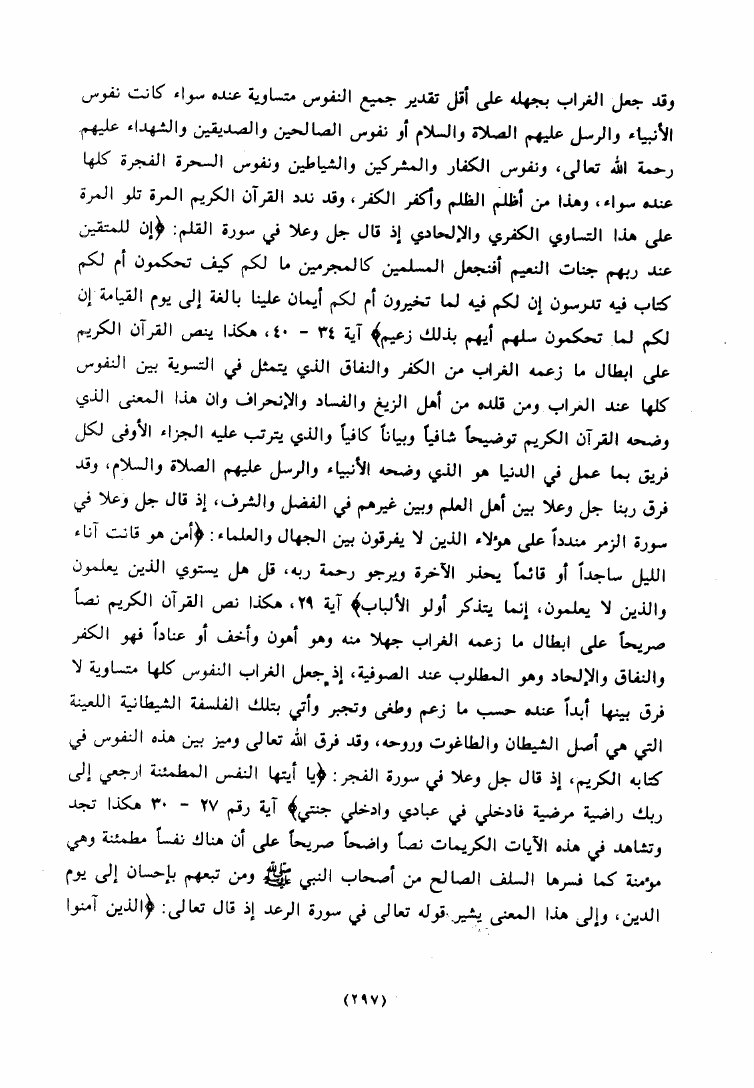 وقد جعل الغراب بجهله على أقل تقدير جميع النفوس متساوية عنده سواء كانت نفوس
الأنبياء والرسل عليهم الصلاة والسلام أو نفوس الصالحين والصديقين والشهداء عليهم
رحمة الله تعالى، ونفوس الكفار والمشركين والشياطين ونفوس السحرة الفجرة كلها
عنده سواء، وهذا من أظلم الظلم وأكفر الكفر، وقد ندد القرآن الكريم المرة تلو المرة
على هذا التساوي الكفري والإلحادي إذ قال جل وعلا في سورة القلم: ﴿إن للمتقين
عند ربهم جنات النعيم أفنجعل المسلمين كالمجرمين ما لكم كيف تحكمون أم لكم
كتاب فيه تدرسون إن لكم فيه لما تخيرون أم لكم أيمان علينا بالغة إلى يوم القيامة إن
لكم لما تحكمون سلهم أيهم بذلك زعيم﴾ آية ٣٤ - ٤٠، هكذا ينص القرآن الكريم
على ابطال ما زعمه الغراب من الكفر والنفاق الذي يتمثل في التسوية بين النفوس
كلها عند الغراب ومن قلده من أهل الزيغ والفساد والإنحراف وان هذا المعنى الذي
وضحه القرآن الكريم توضيحاً شافياً وبياناً كافياً والذي يترتب عليه الجزاء الأوفى لكل
فريق بما عمل في الدنيا هو الذي وضحه الأنبياء والرسل عليهم الصلاة والسلام، وقد
فرق ربنا جل وعلا بين أهل العلم وبين غيرهم في الفضل والشرف، إذ قال جل وعلا في
سورة الزمر مندداً على هؤلاء الذين لا يفرقون بين الجهال والعلماء: ﴿أمن هو قانت آناء
الليل ساجداً أو قائماً يحذر الآخرة ويرجو رحمة ربه، قل هل يستوي الذين يعلمون
والذين لا يعلمون، إنما يتذكر أولو الألباب﴾ آية ٢٩، هكذا نص القرآن الكريم نصاً
صريحاً على ابطال ما زعمه الغراب جهلا منه وهو أهون وأخف أو عناداً فهو الكفر
والنفاق والإلحاد وهو المطلوب عند الصوفية، إذ جعل الغراب النفوس كلها متساوية لا
فرق بينها أبداً عنده حسب ما زعم وطغى وتجبر وأتي بتلك الفلسفة الشيطانية اللعينة
التي هي أصل الشيطان والطاغوت وروحه، وقد فرق الله تعالى وميز بين هذه النفوس في
كتابه الكريم، إذ قال جل وعلا في سورة الفجر: ﴿يا أيتها النفس المطمئنة ارجعي إلى
ربك راضية مرضية فادخلي في عبادي وادخلي جنتي﴾ آية رقم ٢٧ - ٣٠ هكذا تجد
وتشاهد في هذه الآيات الكريمات نصاً واضحاً صريحاً على أن هناك نفساً مطمئنة وهي
مؤمنة كما فسرها السلف الصالح من أصحاب النبي ﷺ ومن تبعهم بإحسان إلى يوم
الدين، وإلى هذا المعنى يشير قوله تعالى في سورة الرعد إذ قال تعالى: ﴿الذين آمنوا
(٢٩٧)